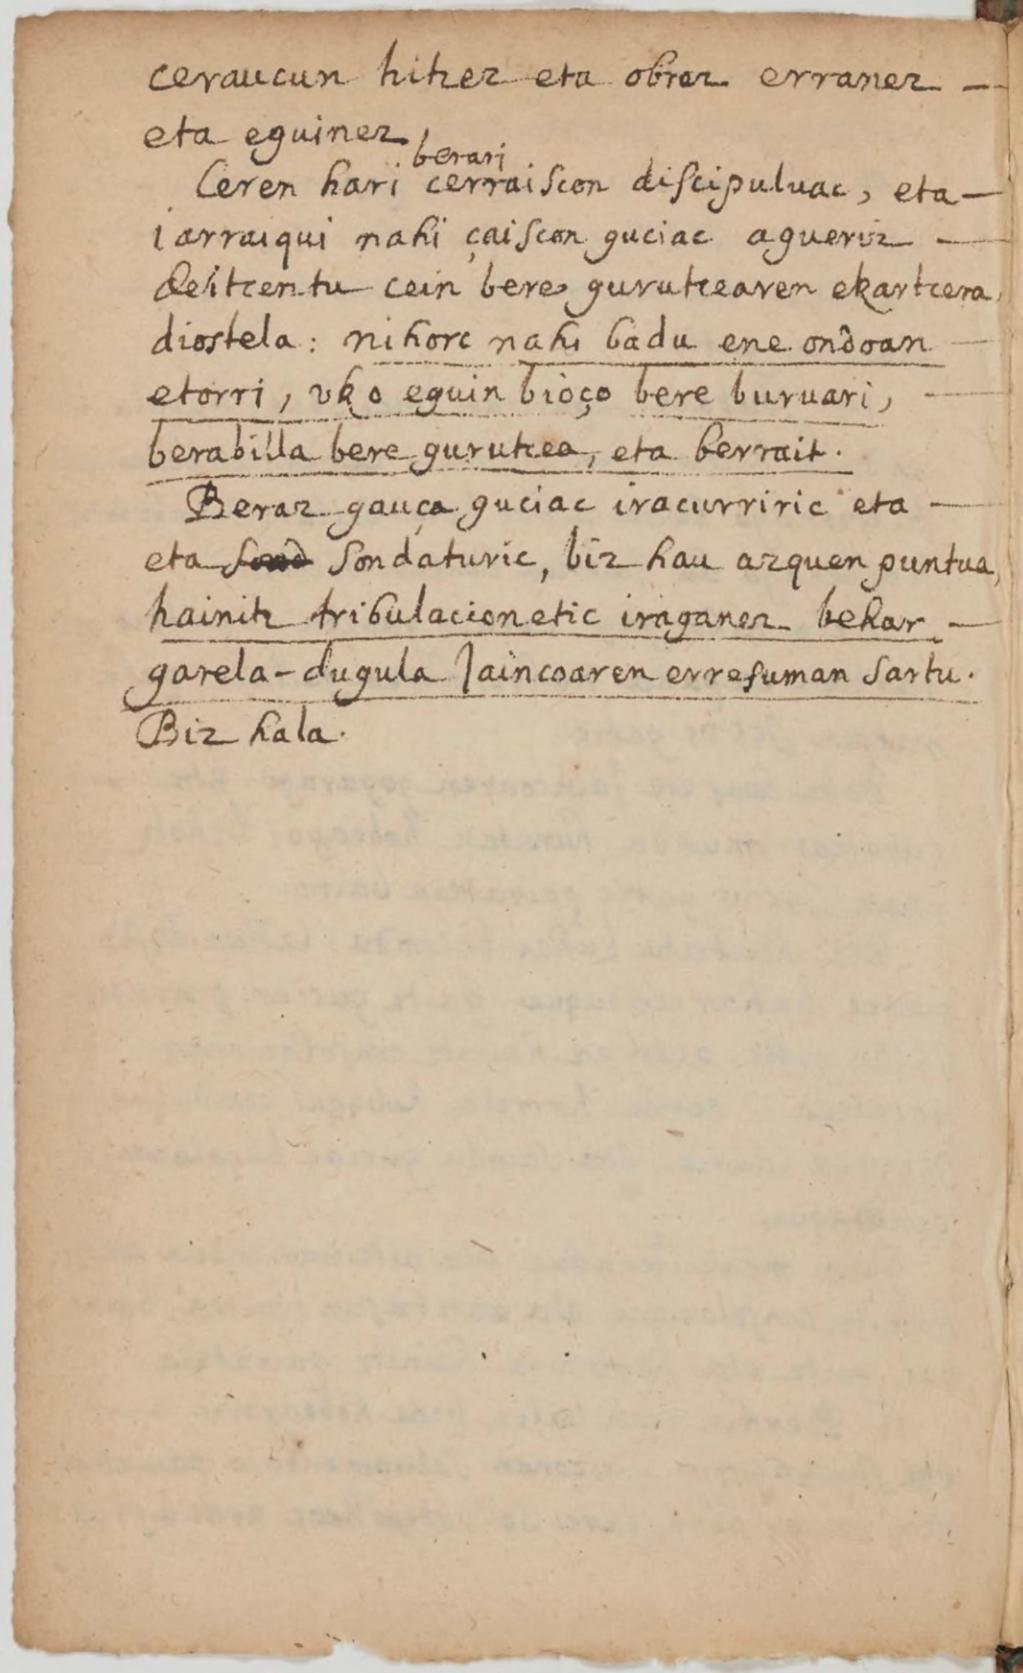 ceraucun hitzez eta obraz erranez —
eta eguinez,
berari
Ceren hari cerraiscon discipuluac, eta —
iarraiqui nahi çaiscon guciac agueriz —
deitcentu cein bere gurutcearen ekartcera,
diostela: nihorc nahi badu ene ondoan —
etorri, vko eguin bioço bere buruari, —
berabilla bere gurutcea, eta berrait.
Beraz gauça guciac iracurriric eta —
eta sond sondaturic, biz hau azquen puntua,
hainitz tribulacionetic iraganez behar —
garela - dugula Jaincoaren erresuman sartu.
Biz hala.